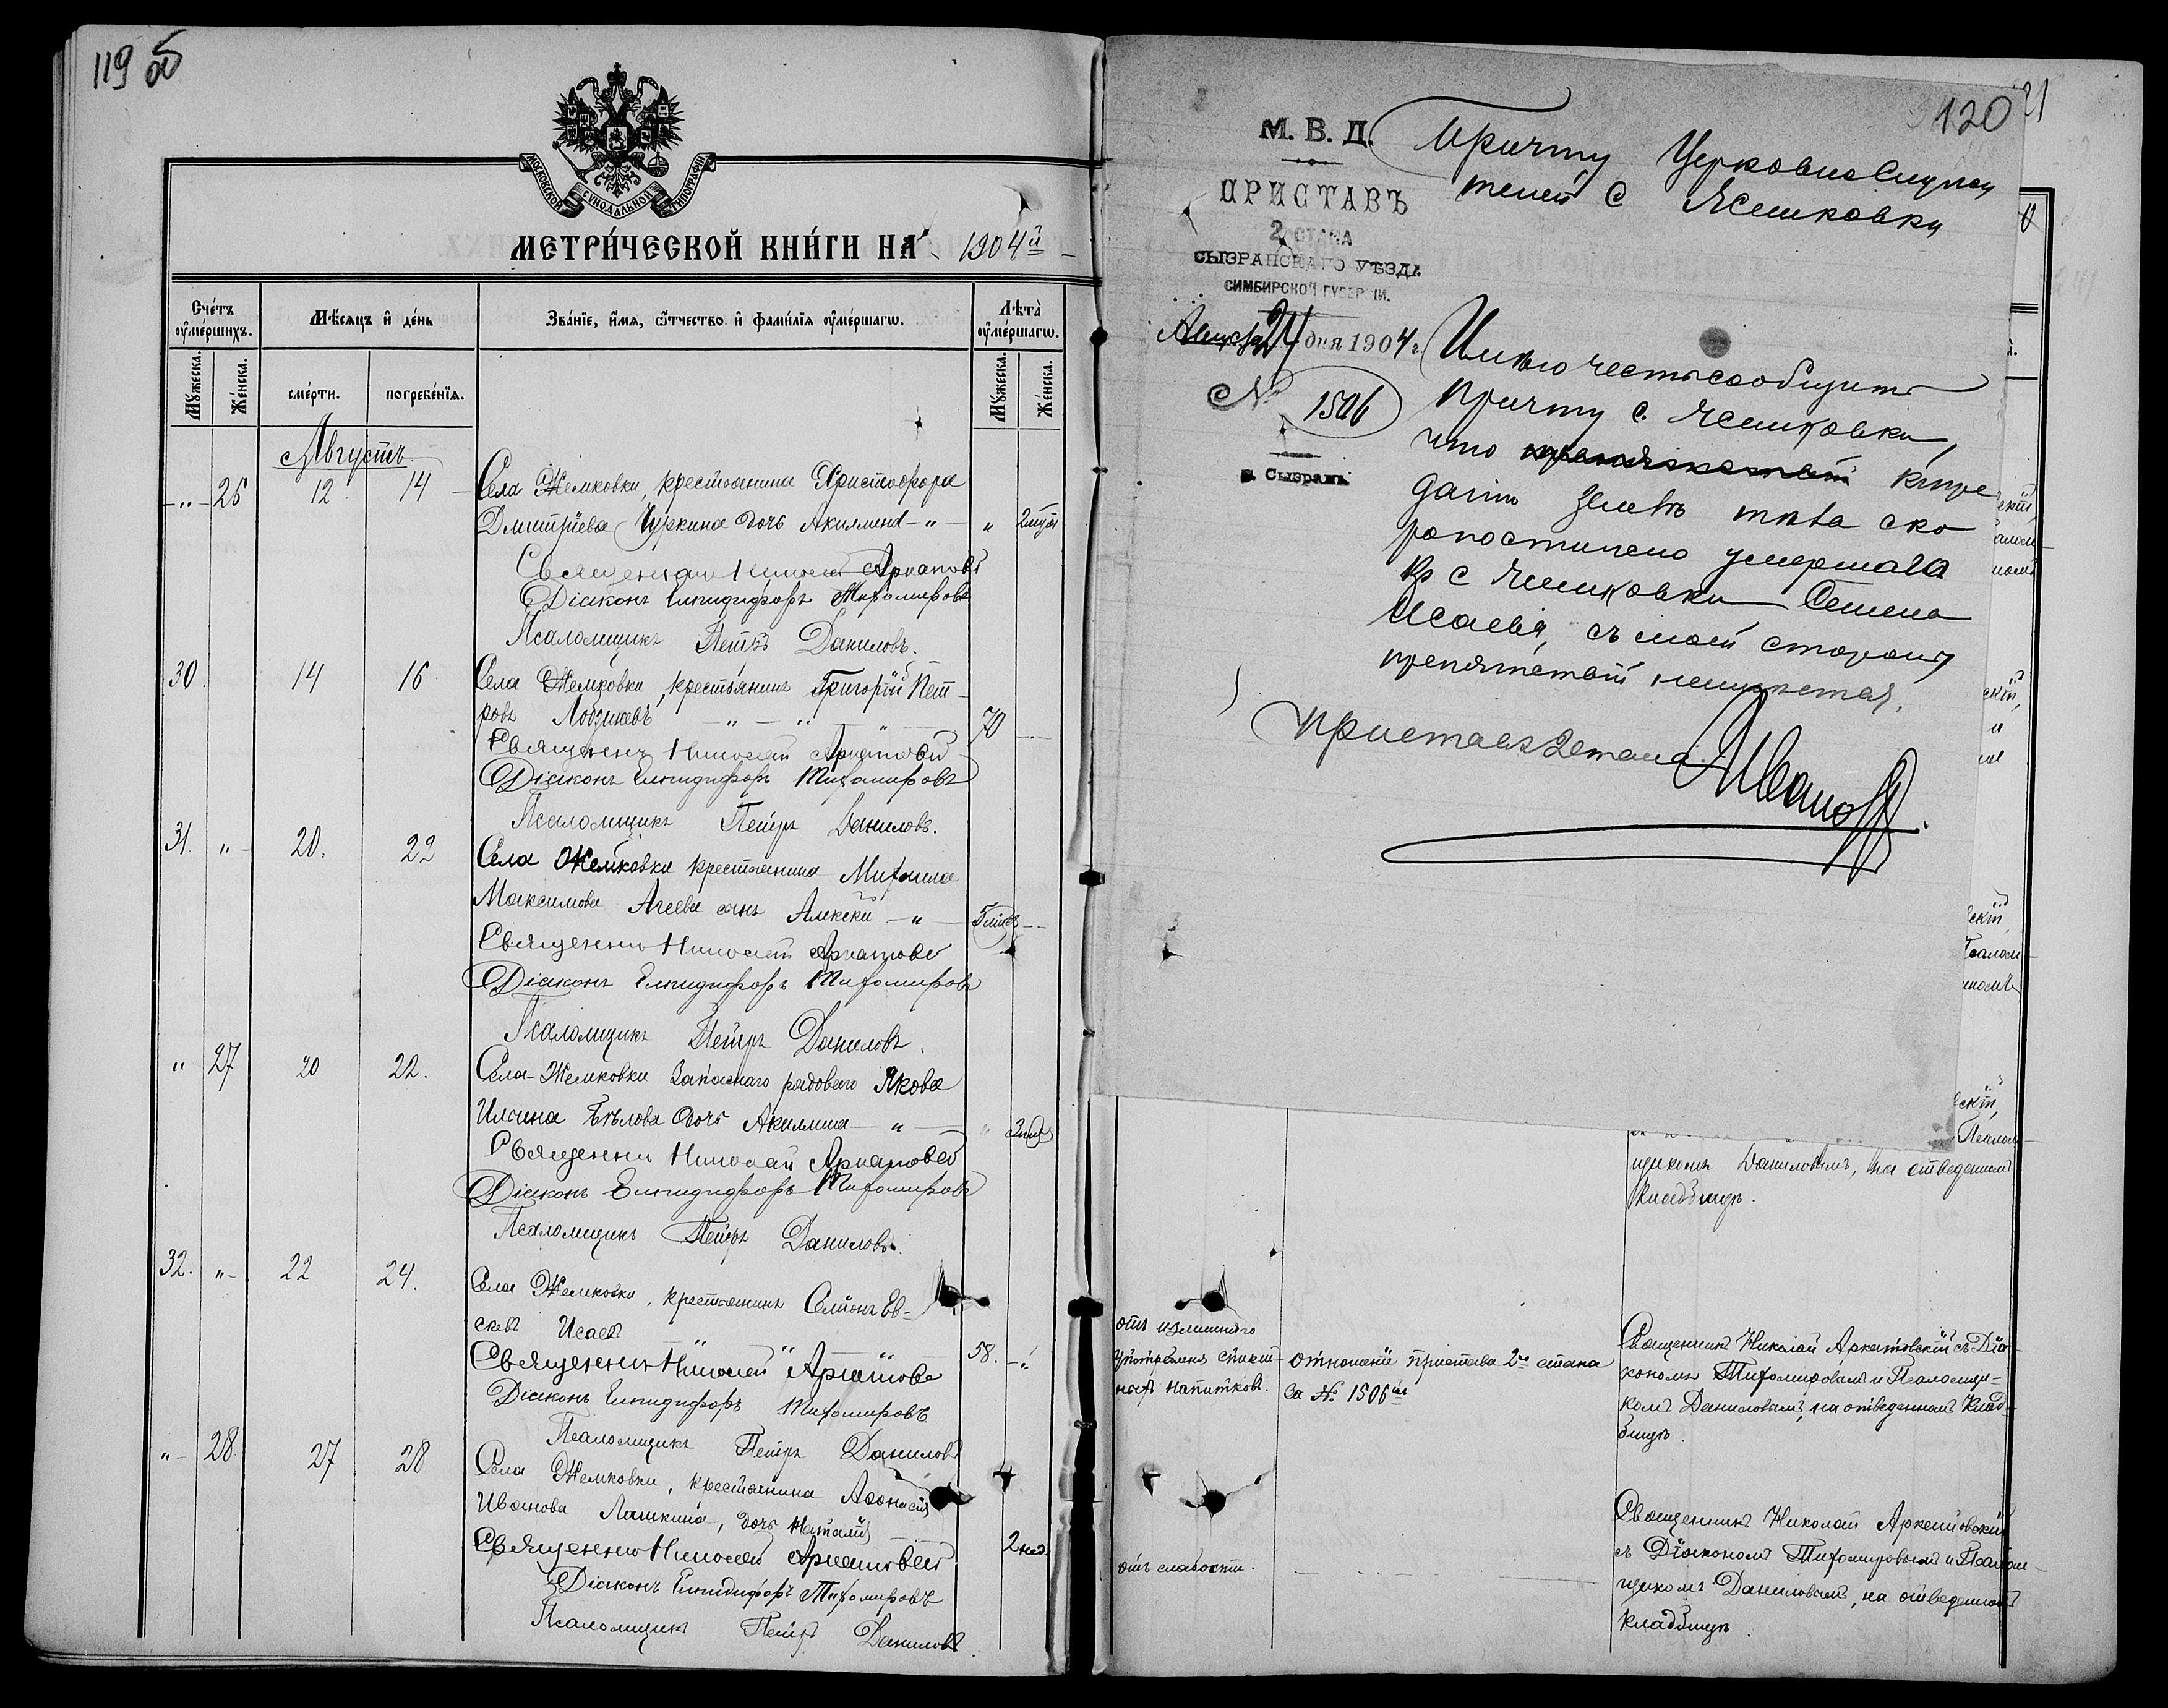 119 об
МОСКОВСКОЙ СѴНОДАЛЬНОЙ ТИПОГРАФІИ
МЕТРИ́ЧЕСКОЙ КНИ́ГИ НА 1904й
Сче́тъ ᲂу҆ме́ршихъ.
Мѣ́сяцъ и҆ де́нь
Зва́нїе, и҆́мя, ѻ҆́тчество и҆ фами́лїя ᲂу҆ме́ршагѡ.
Лѣ́та ᲂу҆ме́ршагѡ.
Мꙋ́жеска.
Же́нска.
сме́рти.
погребе́нїя.
Мꙋ́жеска.
Же́нска.
Августъ
-"- 26 12 14 Села Жемковки, крестьянина Христофора
Дмитріева Чуркина дочь Акилина -"- "
Священникъ Николай Аркатовскій
Діаконъ Елпидифоръ Тихомировъ
Псаломщикъ Петръ Даниловъ.
30. 14 16 Села Жемковки, крестьянинъ Григорій Пет-
ровъ 70
Священникъ Николай Аркатовскій
Діаконъ Елпидифоръ Тихомировъ
Псаломщикъ Петръ Даниловъ.
31. " 20. 22 Села Жемковки крестьянина Михаила
Максимова Агеева сынъ Алексѣй -"- 5 мѣс.
Священникъ Николай Аркатовскій
Діаконъ Елпидифоръ Тихомировъ
Псаломщикъ Петръ Даниловъ.
" 27 20 22. Села Жемковки запаснаго рядового Якова
Ильина Бѣлова дочь Акилина -"-
Священникъ Николай Аркатовскій
Діаконъ Елпидифоръ Тихомировъ
Псаломщикъ Петръ Даниловъ.
32. "- 22 24. Села Жемковки, крестьянинъ Семіонъ Ев-
Исаевъ 58. -"
Священникъ Николай Аркатовскій
Діаконъ Елпидифоръ Тихомировъ
Псаломщикъ Петръ Даниловъ
"- 28 27 28 Села Жемковки, крестьянина Аѳонасія
Иванова Лашкина, дочь Наталія 2 нед.
Священникъ Николай Аркатовскій
Діаконъ Елпидифоръ Тихомировъ
Псаломщикъ Петръ Даниловъ
120
21
М. В. Д.
ПРИСТАВЪ
2 СТАНА
СЫЗРАНСКАГО УѢЗДА
СИМБИРСКОЙ ГУБЕРНІИ.
Августа 24 дня 1904 г.
№ 1506
г. Сызрань
Причту Церковно Служи
телей с Жемковки
Имѣю честь сообщить
причту с. Жемковки,
что к пре
данію землѣ тѣла ско
ропостижно умершаго
кр с Жемковки Семена
Исаева, съ моей стороны
препятствій неимѣется.
Приставъ 2 стана Ивановъ
щикомъ Даниловымъ, на отведенномъ
кладбищѣ.
отъ излишняго
употребленія спирт-
ныхъ напитковъ.
Отношеніе пристава 2го стана
за № 1506мъ
Священникъ Николай Аркатовскій съ Діа-
кономъ Тихомировымъ и Псаломщи-
комъ Даниловымъ, на отведенномъ клад-
бищѣ.
отъ слабости.
Священникъ Николай Аркатовскій
съ Діакономъ Тихомировымъ и Псалом-
щикомъ Даниловымъ, на отведенномъ
кладбищѣ.